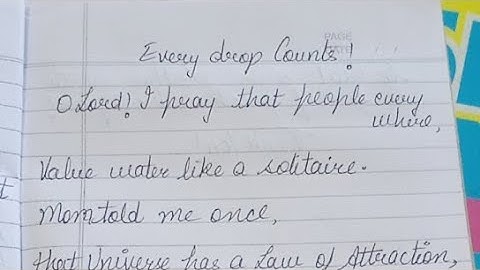 PAGE
DATE
Every drop Counts!
O Lord! I pray that people every
where,
Value water like a solitaire.
Mom told me once,
that Universe has a Law of Attraction,
t